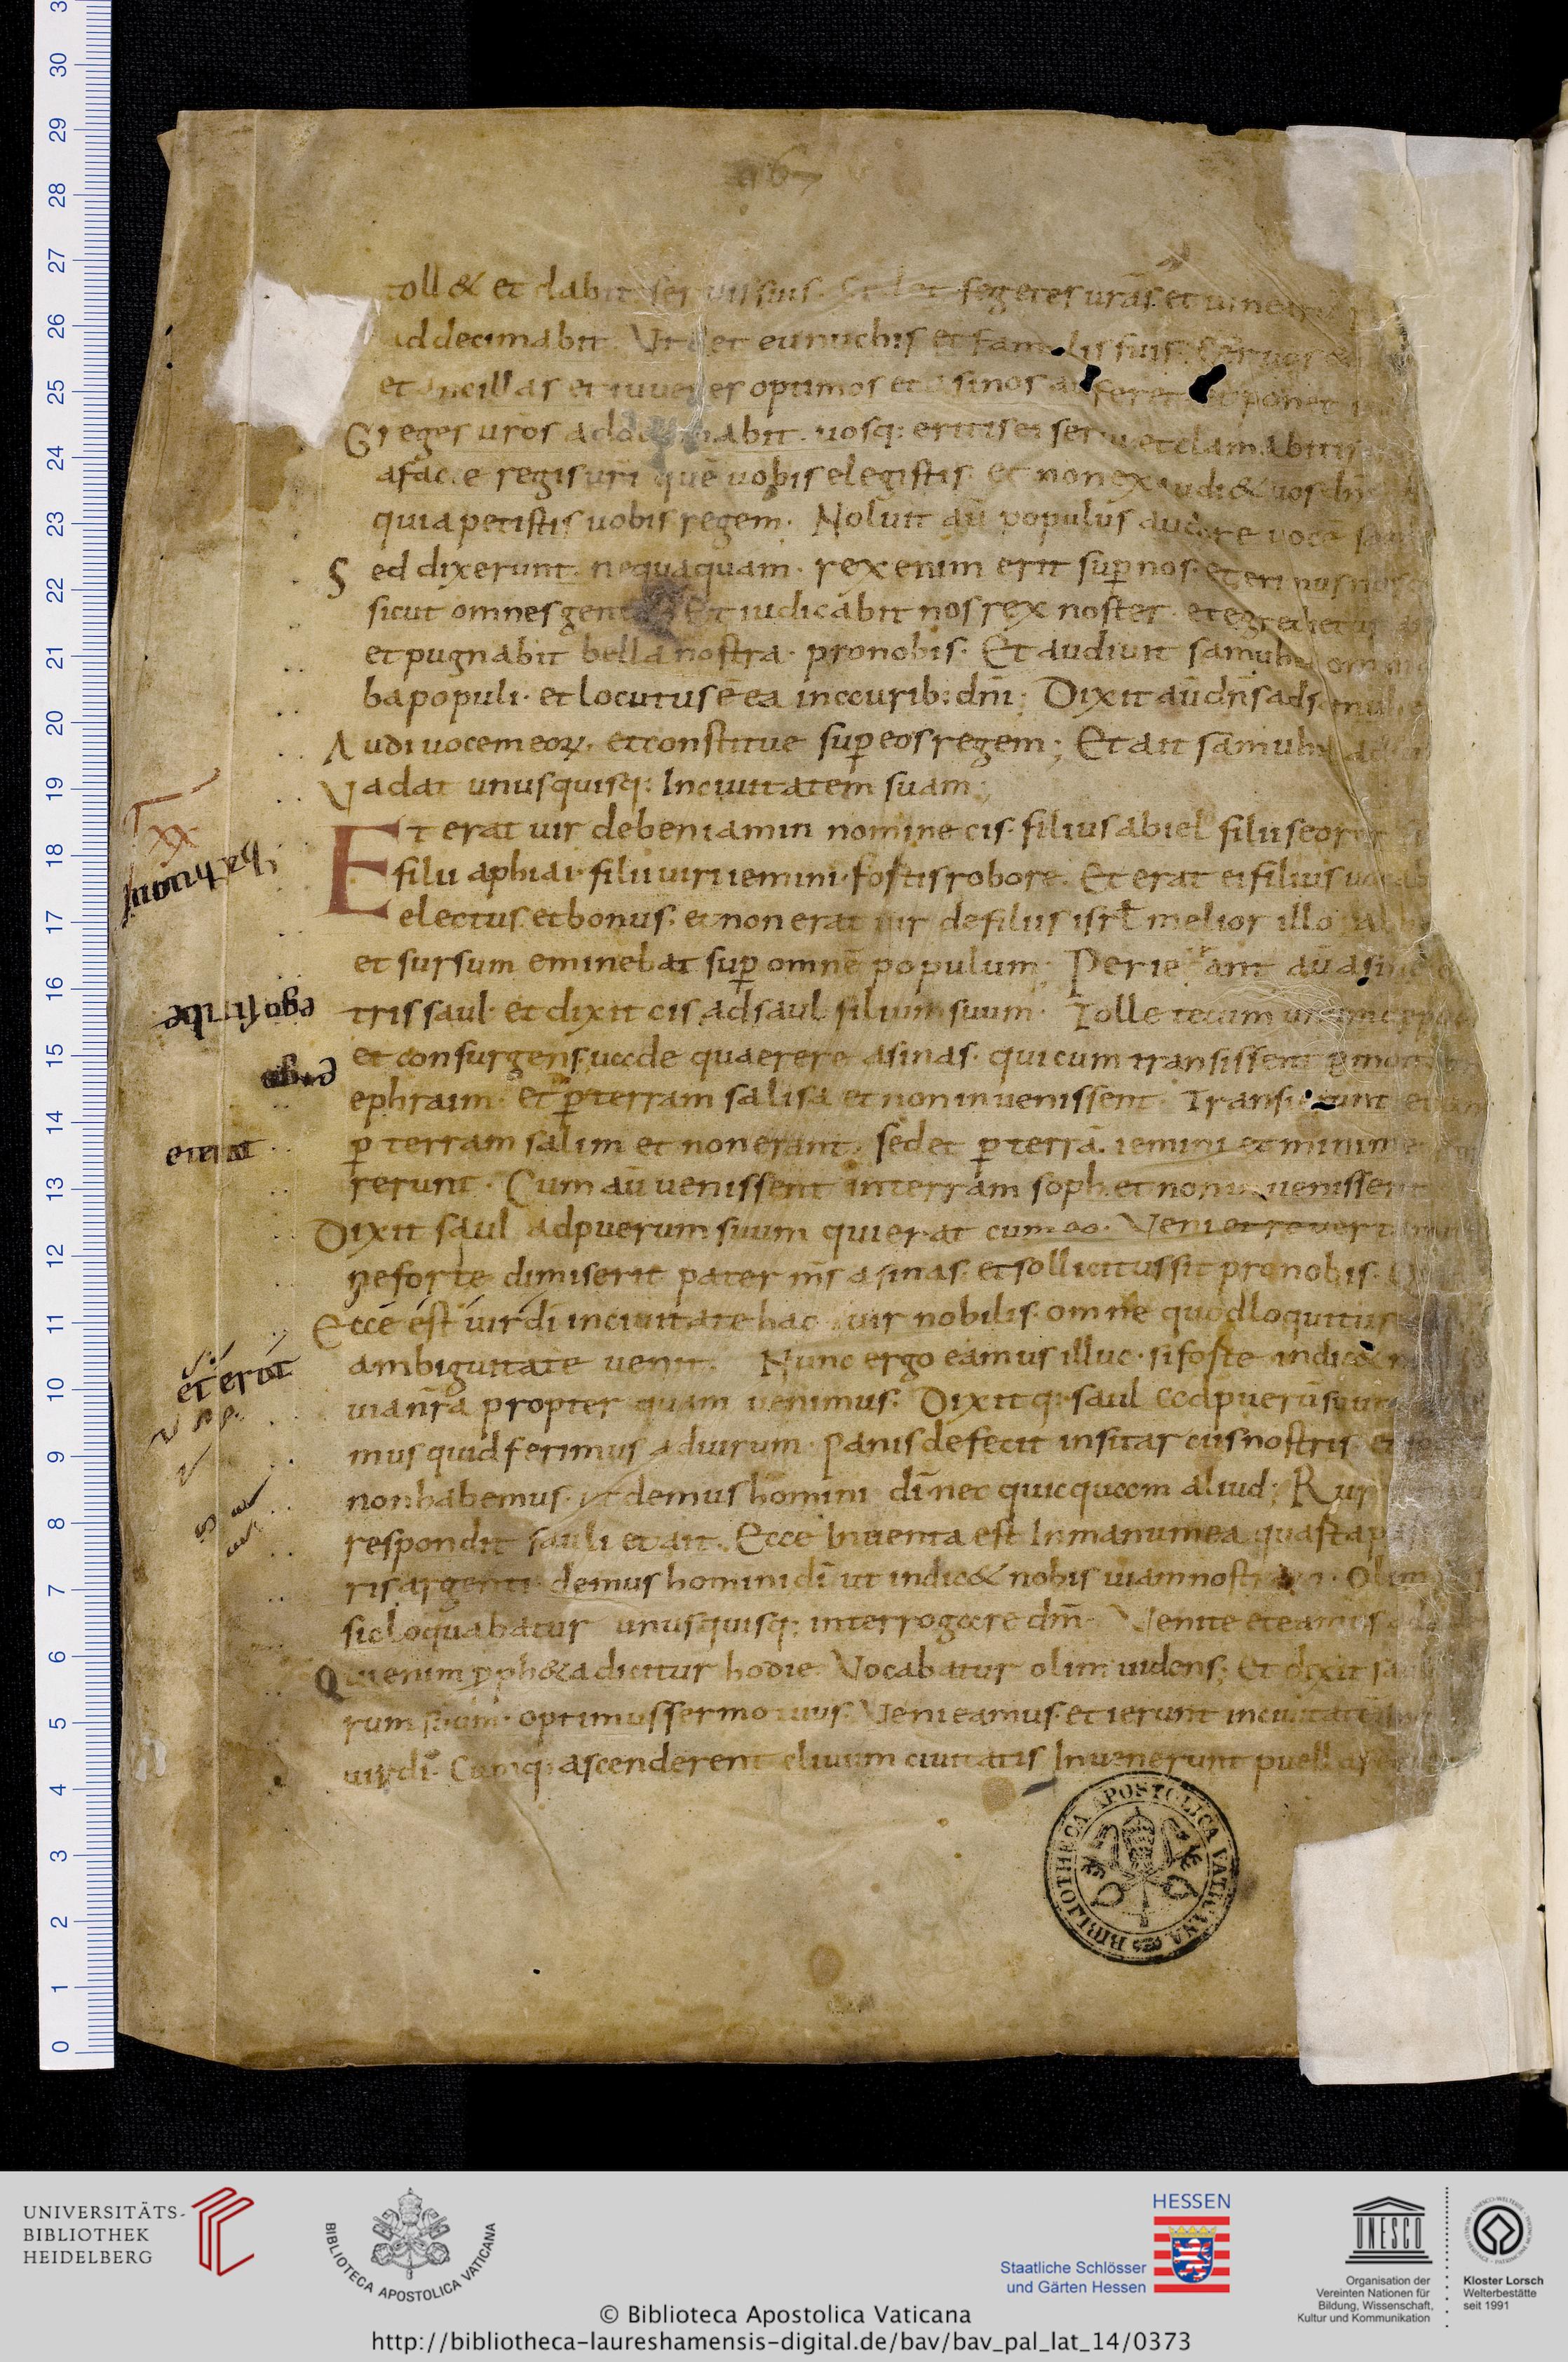 toll& et dabit seruis suis. Sed et segetes urās. et uineарū
addecimabit. Ut det eunuchis et famulis suis. Seruos &
et ancillas et iuuenes optimos et asinos auferet et ponet
Greges urōs addecimabit. uosq: eritis ei serui et clamabitis
afacie regis uri quē uobis elegistis. et non exaudi& uos dn̄s
quia petistis uobis regem. Noluit aū populus audire uocē
Sed dixerunt nequaquam. rex enim erit sup nos. et erimus nos
sicut omnes gentes Et iudicabit nos rex noster. et egredietur
et pugnabit bella nostra. pro nobis. Et audiuit samuhel omnia
ba populi. et locutus ē ea in aurib: dn̄i; Dixit aū dn̄s ad samuhel
Audi uocem eoꝝ. et constitue sup eos regem; Et ait samuhel ad
Vadat unusquisq: In ciuitatem suam;
Et erat uir de beniamin nomine cis. filius abiel filii seor
filii aphiai. filii uiri iemini. fostis robore. Et erat ei filius uocab
electus et bonus. et non erat uir de filiis isrl melior illo Ab
et sursum eminebat sup omnē populum; Perierant aū asine
tris saul. et dixit cis ad saul filium suum. Tolle tecum unum
et consurgens uade quaerere asinas. qui cum transissent p mon
ephraim. et p terram salisa et non inuenissent. Transierunt etiam
p terram salim et non erant. sed et p terrā. iemini et minime
rerunt. Cum aū uenissent in terram soph. et non inuenissent
Dixit saul ad puerum suum qui erat cum eo. Veni et reuert
ne forte dimiserit pater m̄s asinas. et sollicitus sit pro nobis.
Ecce est uir di in ciuitate hac uir nobilis. omne quod loquitur
ambiguitate uenit. Nunc ergo eamus illuc. si foste indic&
uia nrā propter quam uenimus. Dixitq: saul ad puerū suum
mus quid ferimus ad uirum. panis defecit in sitarciis nostris et
non habemus. ut demus homini di nec quicquam aliud; Rur
respondit sauli et ait. Ecce Inuenta est In manu mea quasta pa
ris argenti. demus homini di ut indic& nobis uiam nostram. Olim
sic loquabatur unusquisq; interrogare dm̄. Venite et eamus ad
Qui enim pph&a dicitur hodie. Vocabatur olim uidens; Et dixit saul
rum suum. optimus sermo tuus. Veni eamus. et ierunt in ciuitatē
uir di. Cumq: ascenderent cliuum ciuitatis Inuenerunt puellas
XX
ego scribe
ergo
et erat
BIBLIOTHECA APOSTOLICA VATICANA
0 1 2 3 4 5 6 7 8 9 10 11 12 13 14 15 16 17 18 19 20 21 22 23 24 25 26 27 28 29 30
UNIVERSITÄTS-
BIBLIOTHEK
HEIDELBERG
BIBLIOTECA APOSTOLICA VATICANA
HESSEN
Staatliche Schlösser
und Gärten Hessen
UNESCO
Organisation der
Vereinten Nationen für
Bildung, Wissenschaft,
Kultur und Kommunikation
Kloster Lorsch
Welterbestätte
seit 1991
© Biblioteca Apostolica Vaticana
http://bibliotheca-laureshamensis-digital.de/bav/bav_pal_lat_14/0373